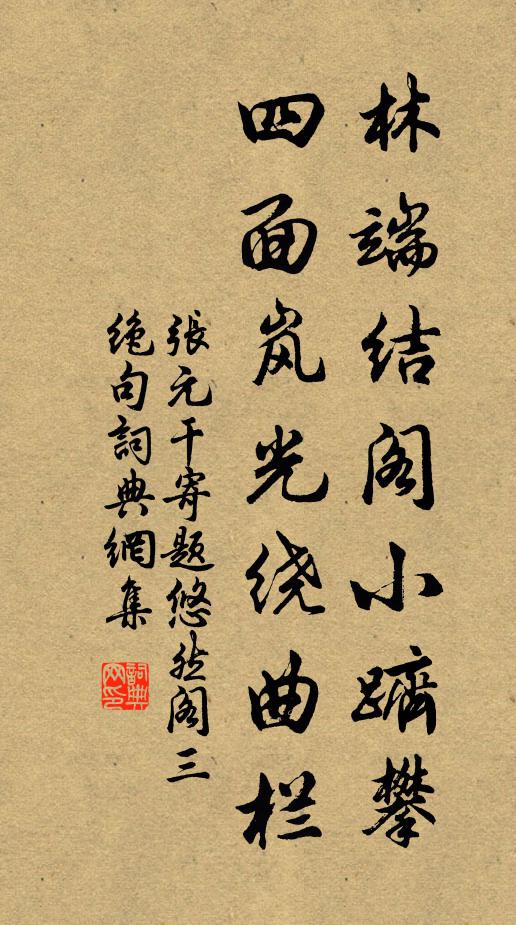 林端结阁小跻攀
四面岚光绕曲栏
張元干寄题悠然阁三
绝句詞典網集
詞典网印